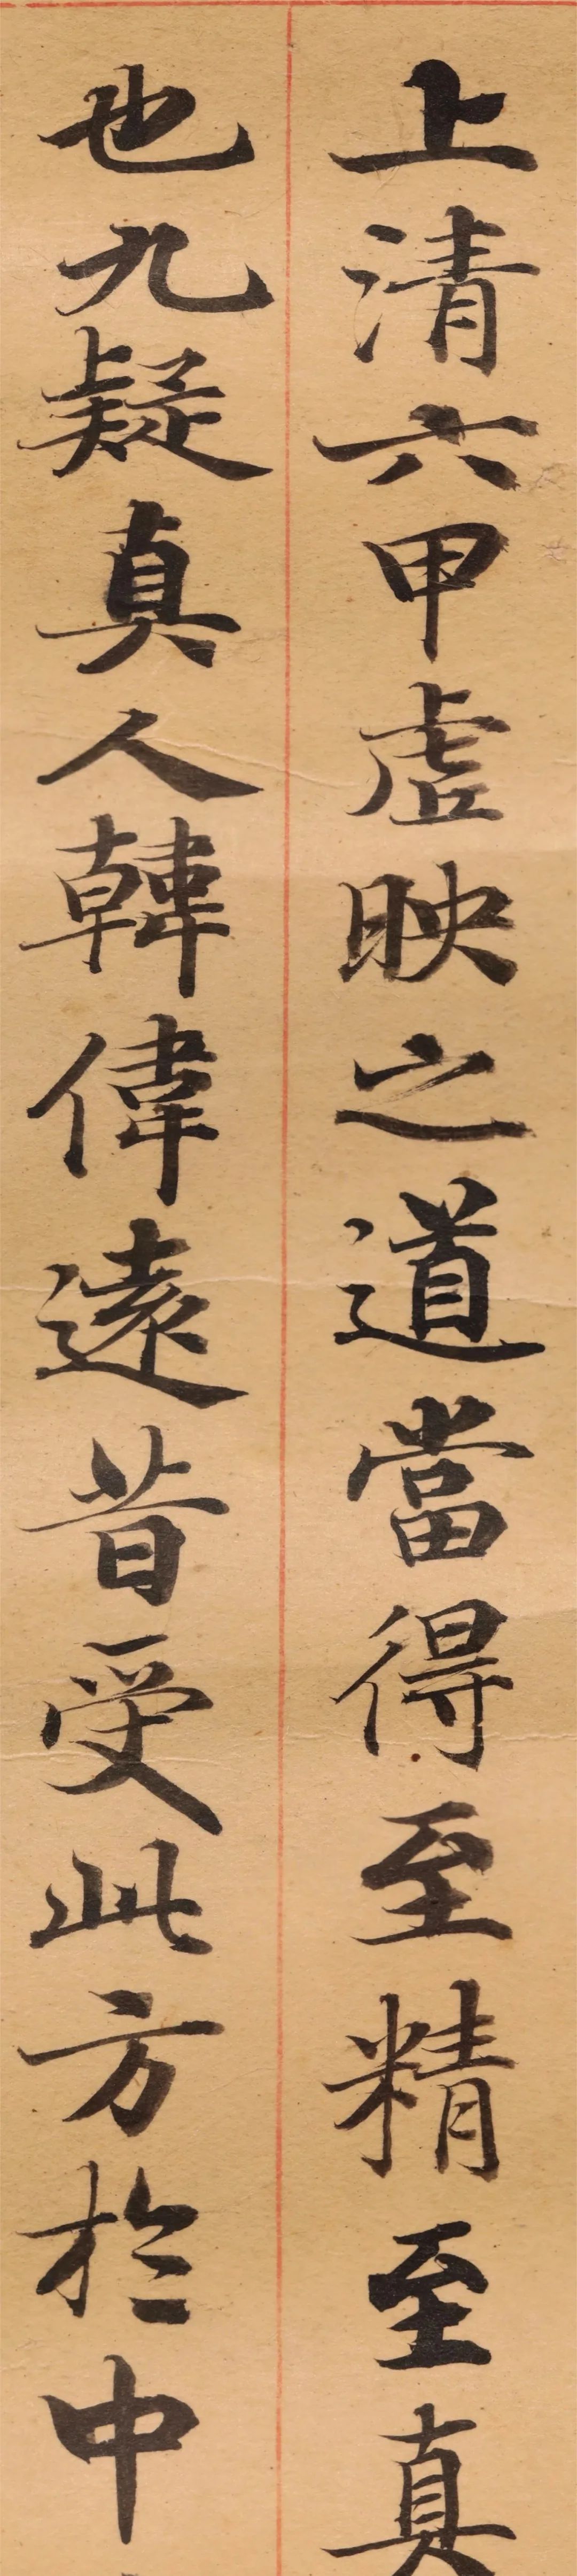 上清六甲虛映之道當得至精至真
也九疑真人韓偉遠昔受此方於中